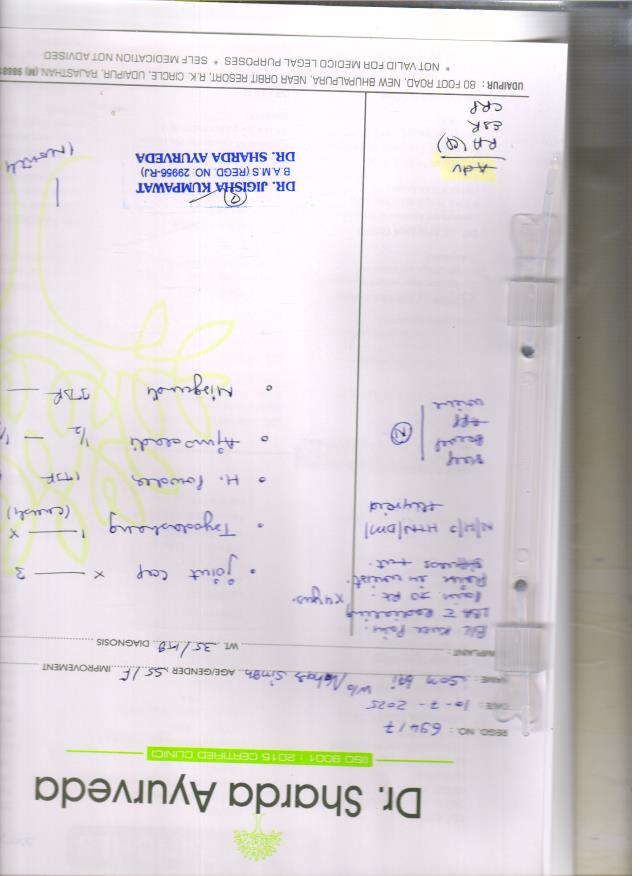 Dr. Sharda Ayurveda
(ISO 9001 : 2015 CERTIFIED CLINIC)
REGD. NO. : 69417
DATE : 10-7-2025
NAME : Som Bai W/o Nahar Singh AGE/GENDER 55/F IMPROVEMENT
WT. DIAGNOSIS
B/L Knee Pain.
LBA c Radiating
Pain to Rt.
Pain in wrist.
x 4 yrs.
N/H/O HTN/DM/
thyroid
Sleep
Bowel
App
Urine
(N)
joint Cap x — 3
Trayodashang 1 — x
(crush)
H. Powder 1TSF
Ajmodadi 1/2 — 1/
Nirgundi TSF —
Adv
RA (Q)
ESR
CRP
DR. JIGISHA KUMPAWAT
B.A.M.S (REGD. NO. 29956-RJ)
DR. SHARDA AYURVEDA
UDAIPUR : 80 FOOT ROAD, NEW BHUPALPURA, NEAR ORBIT RESORT, R.K. CIRCLE, UDAIPUR, RAJASTHAN (M)
* NOT VALID FOR MEDICO LEGAL PURPOSES * SELF MEDICATION NOT ADVISED